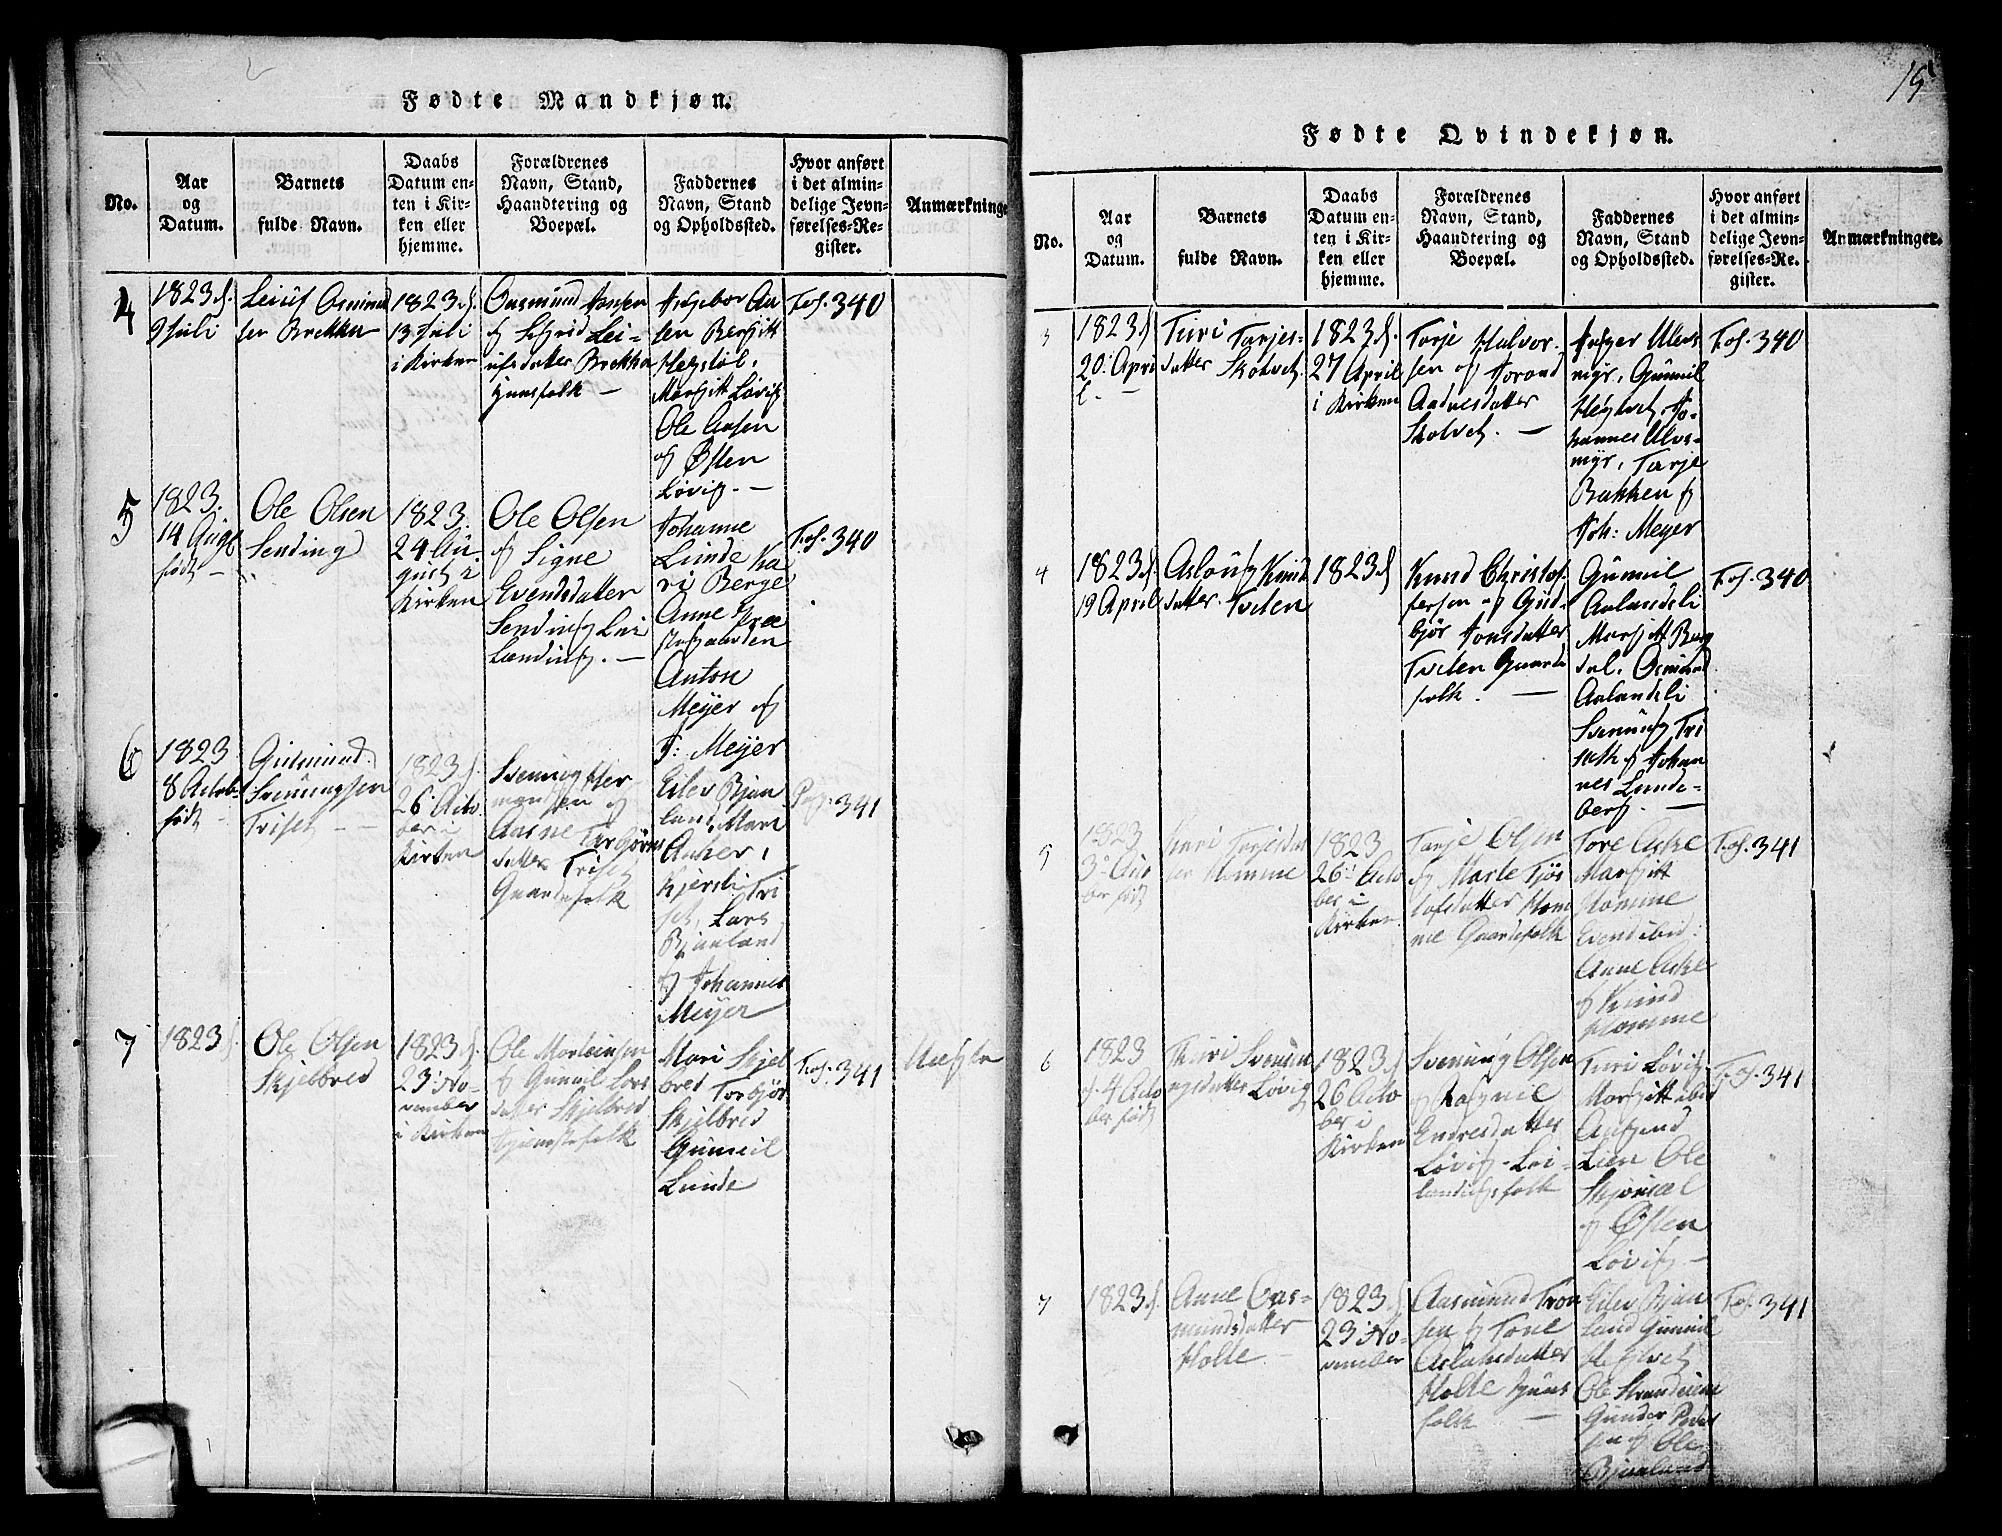 15
Fødte Mandkjøn.
No.
Aar
og
Datum.
Barnets
fulde Navn.
Daabs
Datum en-
ten i Kir-
ken eller
hjemme.
Forældrenes
Navn, Stand,
Haandtering og
Boepæl.
Faddernes
Navn, Stand
og Opholdssted.
Hvor anført
i det almin-
delige Jevn-
førelses-Re-
gister.
Anmærkninge
4
1823
9 Juli
Leiuf Osmund
sen Brekka
1823
13 Juli
i Kirken
Lei-
ufsdatter Brekka
Huusfolk —
Aa
sen Bergitt
Hegstøl,
Margitt Løvig
Ole Aasen
og Østen
Løvig. —
Fol. 340
5
1823.
14 Augt
født —
Ole Olsen
Sending
1823.
24 Au-
gust i
Kirken
Ole Olsen
og Signe
Evendsdatter
Sending Lei
Lænding. —
Johanne
Lunde Ka
ri Berge
Anne Præ
stegaarden
Anton
Meyer og
J: Meyer
Fol. 340
6
1823
8 Octob
født —
Gudmund
Svenungsen
Triset —
1823
26 Octo
ber i
Kirken
Svenung Her
mansen og
Aasne Torbjørns
datter Triset
Gaardefolk
Eilev Bjaa
land, Mari
Anker,
Kjersti Tri
set, Lars
Bjaaland
og Johannes
Meyer
Pag. 341
7
1823
Ole Olsen
Skjelbred
1823
23 No-
vember
i Kirken
Ole Morteinsen
og Gunnil Lars
datter Skjelbred
Hjemstefolk
Mari Skjel
bred Torbjør
Skjelbred
Gunnil
Lunde
Fol. 341
Fødte Qvindekjøn.
No.
Aar
og
Datum.
Barnets
fulde Navn.
Daabs
Datum en-
ten i Kir-
ken eller
hjemme.
Forældrenes
Navn, Stand,
Haandtering og
Boepæl.
Faddernes
Navn, Stand
og Opholdssted.
Hvor anført
i det almin-
delige Jevn-
førelses-Re-
gister.
Anmærkninger.
3
1823
20 Apri
l. —
Turi Tarjes-
datter Skotvet
1823
27 April
i Kirken
Tarje Halvor-
sen og Jorand
Aadnesdatter
Skotvet. —
Ulevs-
myr, Gunnil
Hegtvet, Jo-
hannes Ulvs-
myr, Tarje
Bakken og
Joh: Meyer
Fol. 340
4
1823
19 April
Aslaug Knud
datter Tveten
1823
Knud Christof
fersen og Gud-
bjør Jonsdatter
Tveten Gaarde
folk. —
Gunnil
Aalandsli
Margitt Berg
dal, Osmund
Aalandsli
Svenung Tri
sæt og Johan
nes Lunde-
berg. —
Fol. 340
5
1823
3 Octo
ber født
Kari Tarjesdat
ter Homme
1823
26 Octo
ber i
Kirken
Tarje Olsen
og Marte Tjøs
tofsdatter Hom
me Gaardefolk
Tore Aske
Margitt
Homme
Evend ibid:
Anne Aske
og Knud
Homme
Fol. 341
6
1823
4 Octo
ber født
Thuri Svenun
gsdatter Løvig
1823
26 Octo
ber i
Kirken
Svenung Olsen
og Ragnil
Endresdatter
Løvig Lei-
landigsfolk
Turi Løvig
Margitt ibid
Aafgend
Lien Ole
Skjønsæl
og Østen
Løvig —
Fol. 341
7
1823
Anne Oas-
mundsdatter
Holte
1823
23 No-
vember
Aasmund Tron
sen og Tone
Aslaksdatter
Holte Huus
folk —
Eilev Bjaa
land Gunnil
Hegtvet
Ole Strandmoe
Gunder Peder
sen og Ole
Bjaaland
Fol. 341